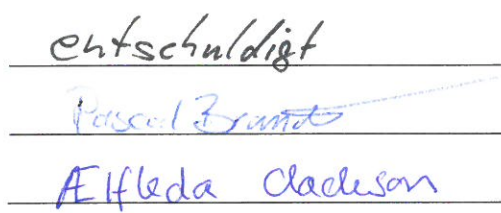 entschuldigt
Pascal Brandt
Ælfleda Clackson